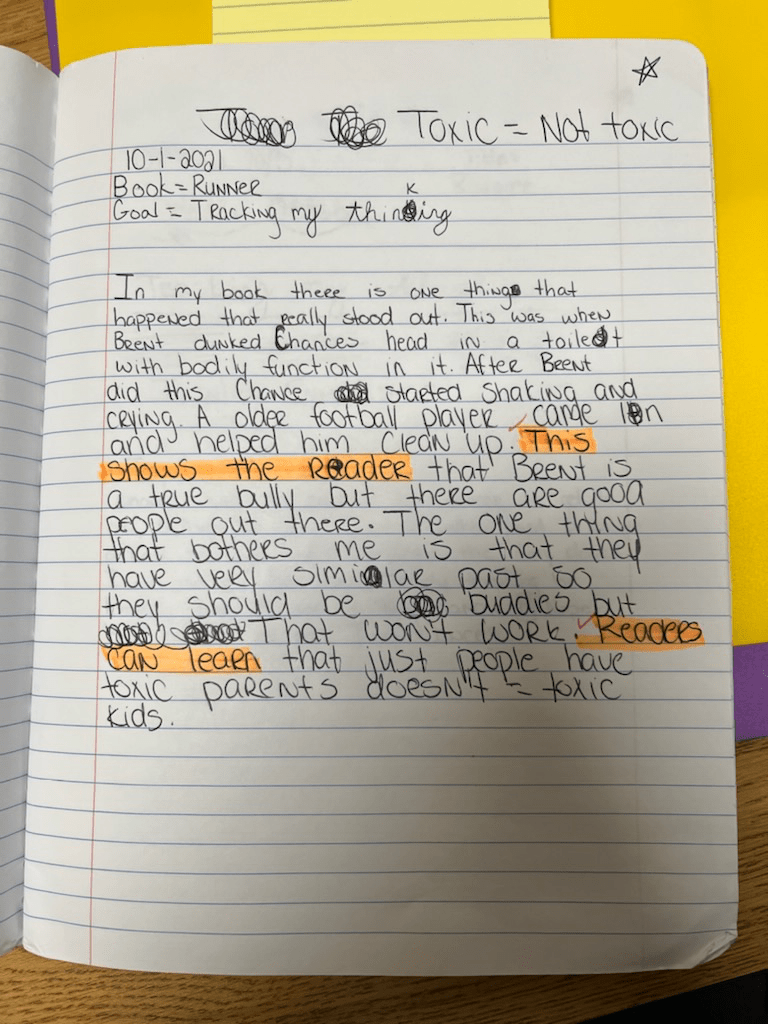 Toxic = Not toxic
10-1-2021
Book = Runner
Goal = Tracking my thinking
In my book there is one thing that
happened that really stood out. This was when
Brent dunked Chances head in a toilet
with bodily function in it. After Brent
did this Chance started shaking and
crying. A older football player came in
and helped him clean up. This
shows the reader that Brent is
a true bully but there are good
people out there. The one thing
that bothers me is that they
have very similar past so
they should be buddies but
That won't work. Readers
can learn that just people have
toxic parents doesn't = toxic
kids.